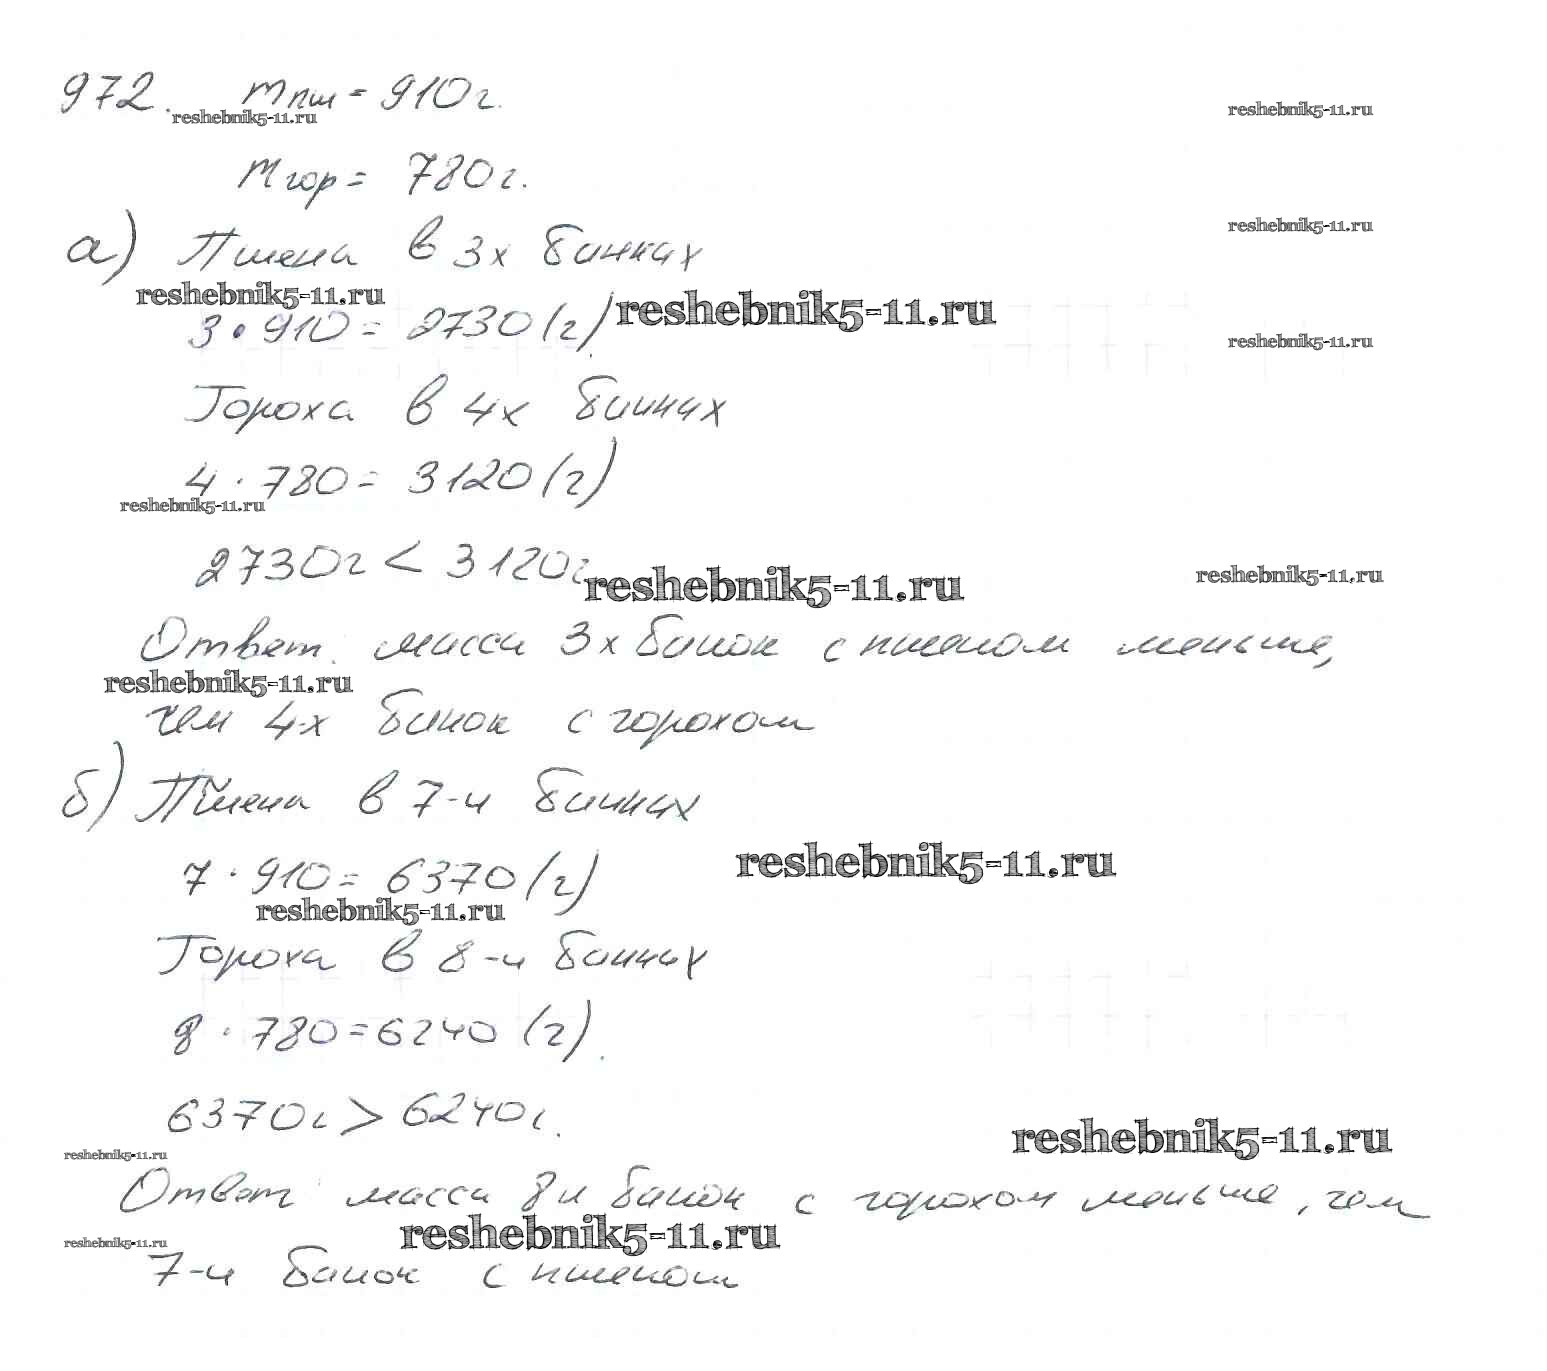 972. mпш = 910г.
reshebnik5-11.ru reshebnik5-11.ru
mгор = 780г.
а) Пшена в 3х банках reshebnik5-11.ru
reshebnik5-11.ru reshebnik5-11.ru
3 • 910 = 2730 (г) reshebnik5-11.ru
Гороха в 4х банках
4 · 780 = 3120 (г)
reshebnik5-11.ru
2730г < 3120г reshebnik5-11.ru reshebnik5-11.ru
Ответ. масса 3х банок с пшеном меньше,
reshebnik5-11.ru
чем 4х банок с горохом
б) Пшена в 7-и банках
7 · 910 = 6370 (г) reshebnik5-11.ru
reshebnik5-11.ru
Гороха в 8-и банках
8 · 780 = 6240 (г).
6370г > 6240г.
reshebnik5-11.ru reshebnik5-11.ru
Ответ масса 8и банок с горохом меньше, чем
reshebnik5-11.ru reshebnik5-11.ru
7-и банок с пшеном